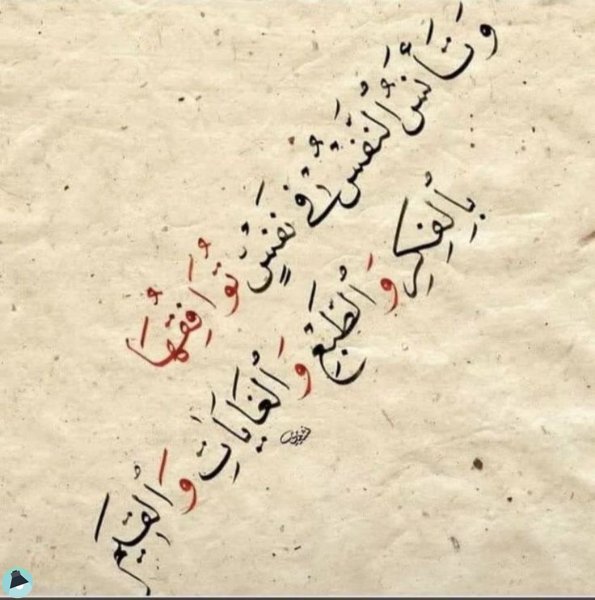 وَتَأنَسُ النَفسُ في نَفسٍ تُوَافِقُهَا
بِالفِكرِ وَالطَبعِ وَالغَايَاتِ وَالقِيَمِ